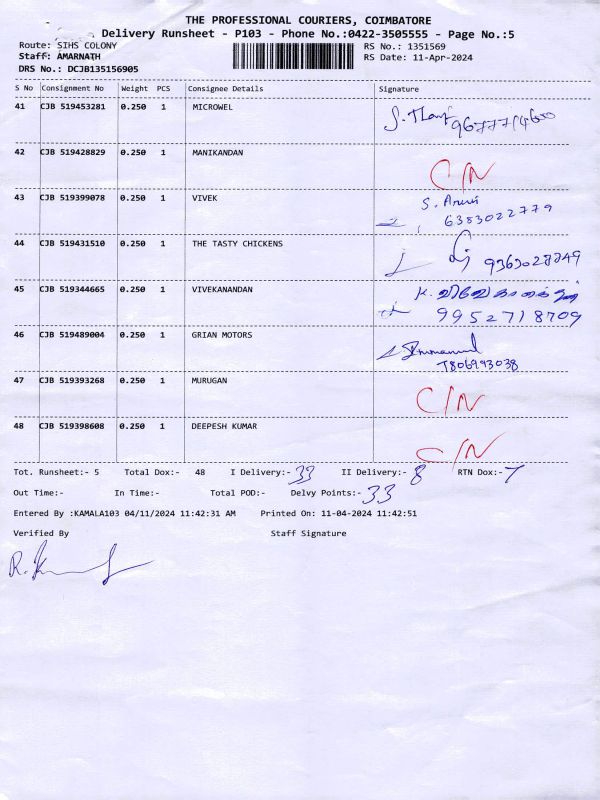 THE PROFESSIONAL COURIERS, COIMBATORE
Delivery Runsheet - P103 - Phone No.:0422-3505555 - Page No.:5
Route: SIHS COLONY
RS No.: 1351569
Staff: AMARNATH
RS Date: 11-Apr-2024
DRS No.: DCJB135156905
S No Consignment No Weight PCS Consignee Details Signature
41 CJB 519453281 0.250 1 MICROWEL
42 CJB 519428829 0.250 1 MANIKANDAN C/N
43 CJB 519399078 0.250 1 VIVEK S. Aruni
6383022779
44 CJB 519431510 0.250 1 THE TASTY CHICKENS
45 CJB 519344665 0.250 1 VIVEKANANDAN K.
9952718709
46 CJB 519489004 0.250 1 GRIAN MOTORS
7806993038
47 CJB 519393268 0.250 1 MURUGAN C/N
48 CJB 519398608 0.250 1 DEEPESH KUMAR C/N
Tot. Runsheet:- 5 Total Dox:- 48 I Delivery:- 33 II Delivery:- 8 RTN Dox:- 7
Out Time:- In Time:- Total POD:- Delvy Points:- 33
Entered By :KAMALA103 04/11/2024 11:42:31 AM Printed On: 11-04-2024 11:42:51
Verified By Staff Signature